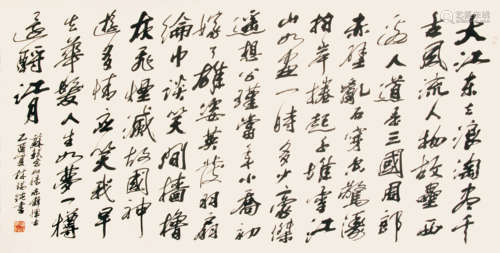 大江東去浪淘盡千
古風流人物故壘西
邊人道是三國周郎
赤壁亂石穿空驚濤
拍岸捲起千堆雪江
山如畫一時多少豪傑
遙想公瑾當年小喬初
嫁了雄姿英發羽扇
綸巾談笑間檣櫓
灰飛煙滅故國神
遊多情應笑我早
生華髮人生如夢一樽
還酹江月
蘇軾念奴嬌赤壁懷古
乙酉夏林書